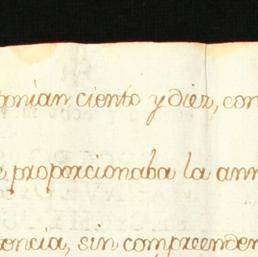 ponian ciento y diez, con
e proporcionaba la ann
encia, sin compreender